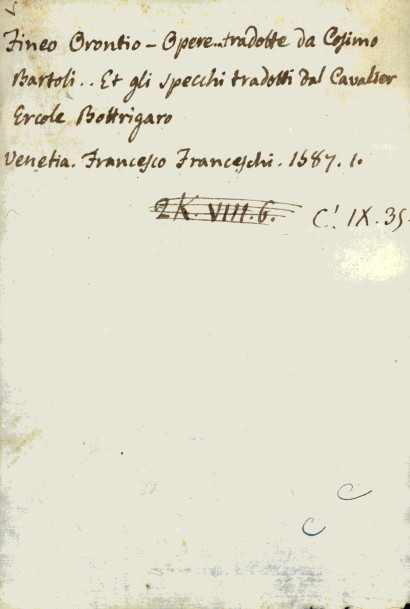 Fineo Orontio - Opere..tradotte da Cosimo
Bartoli.. Et gli specchi tradotti dal Cavalier
Ercole Bottrigaro
Venetia. Francesco Franceschi. 1587. 1.
2K. VIII. 6. C! IX. 35.